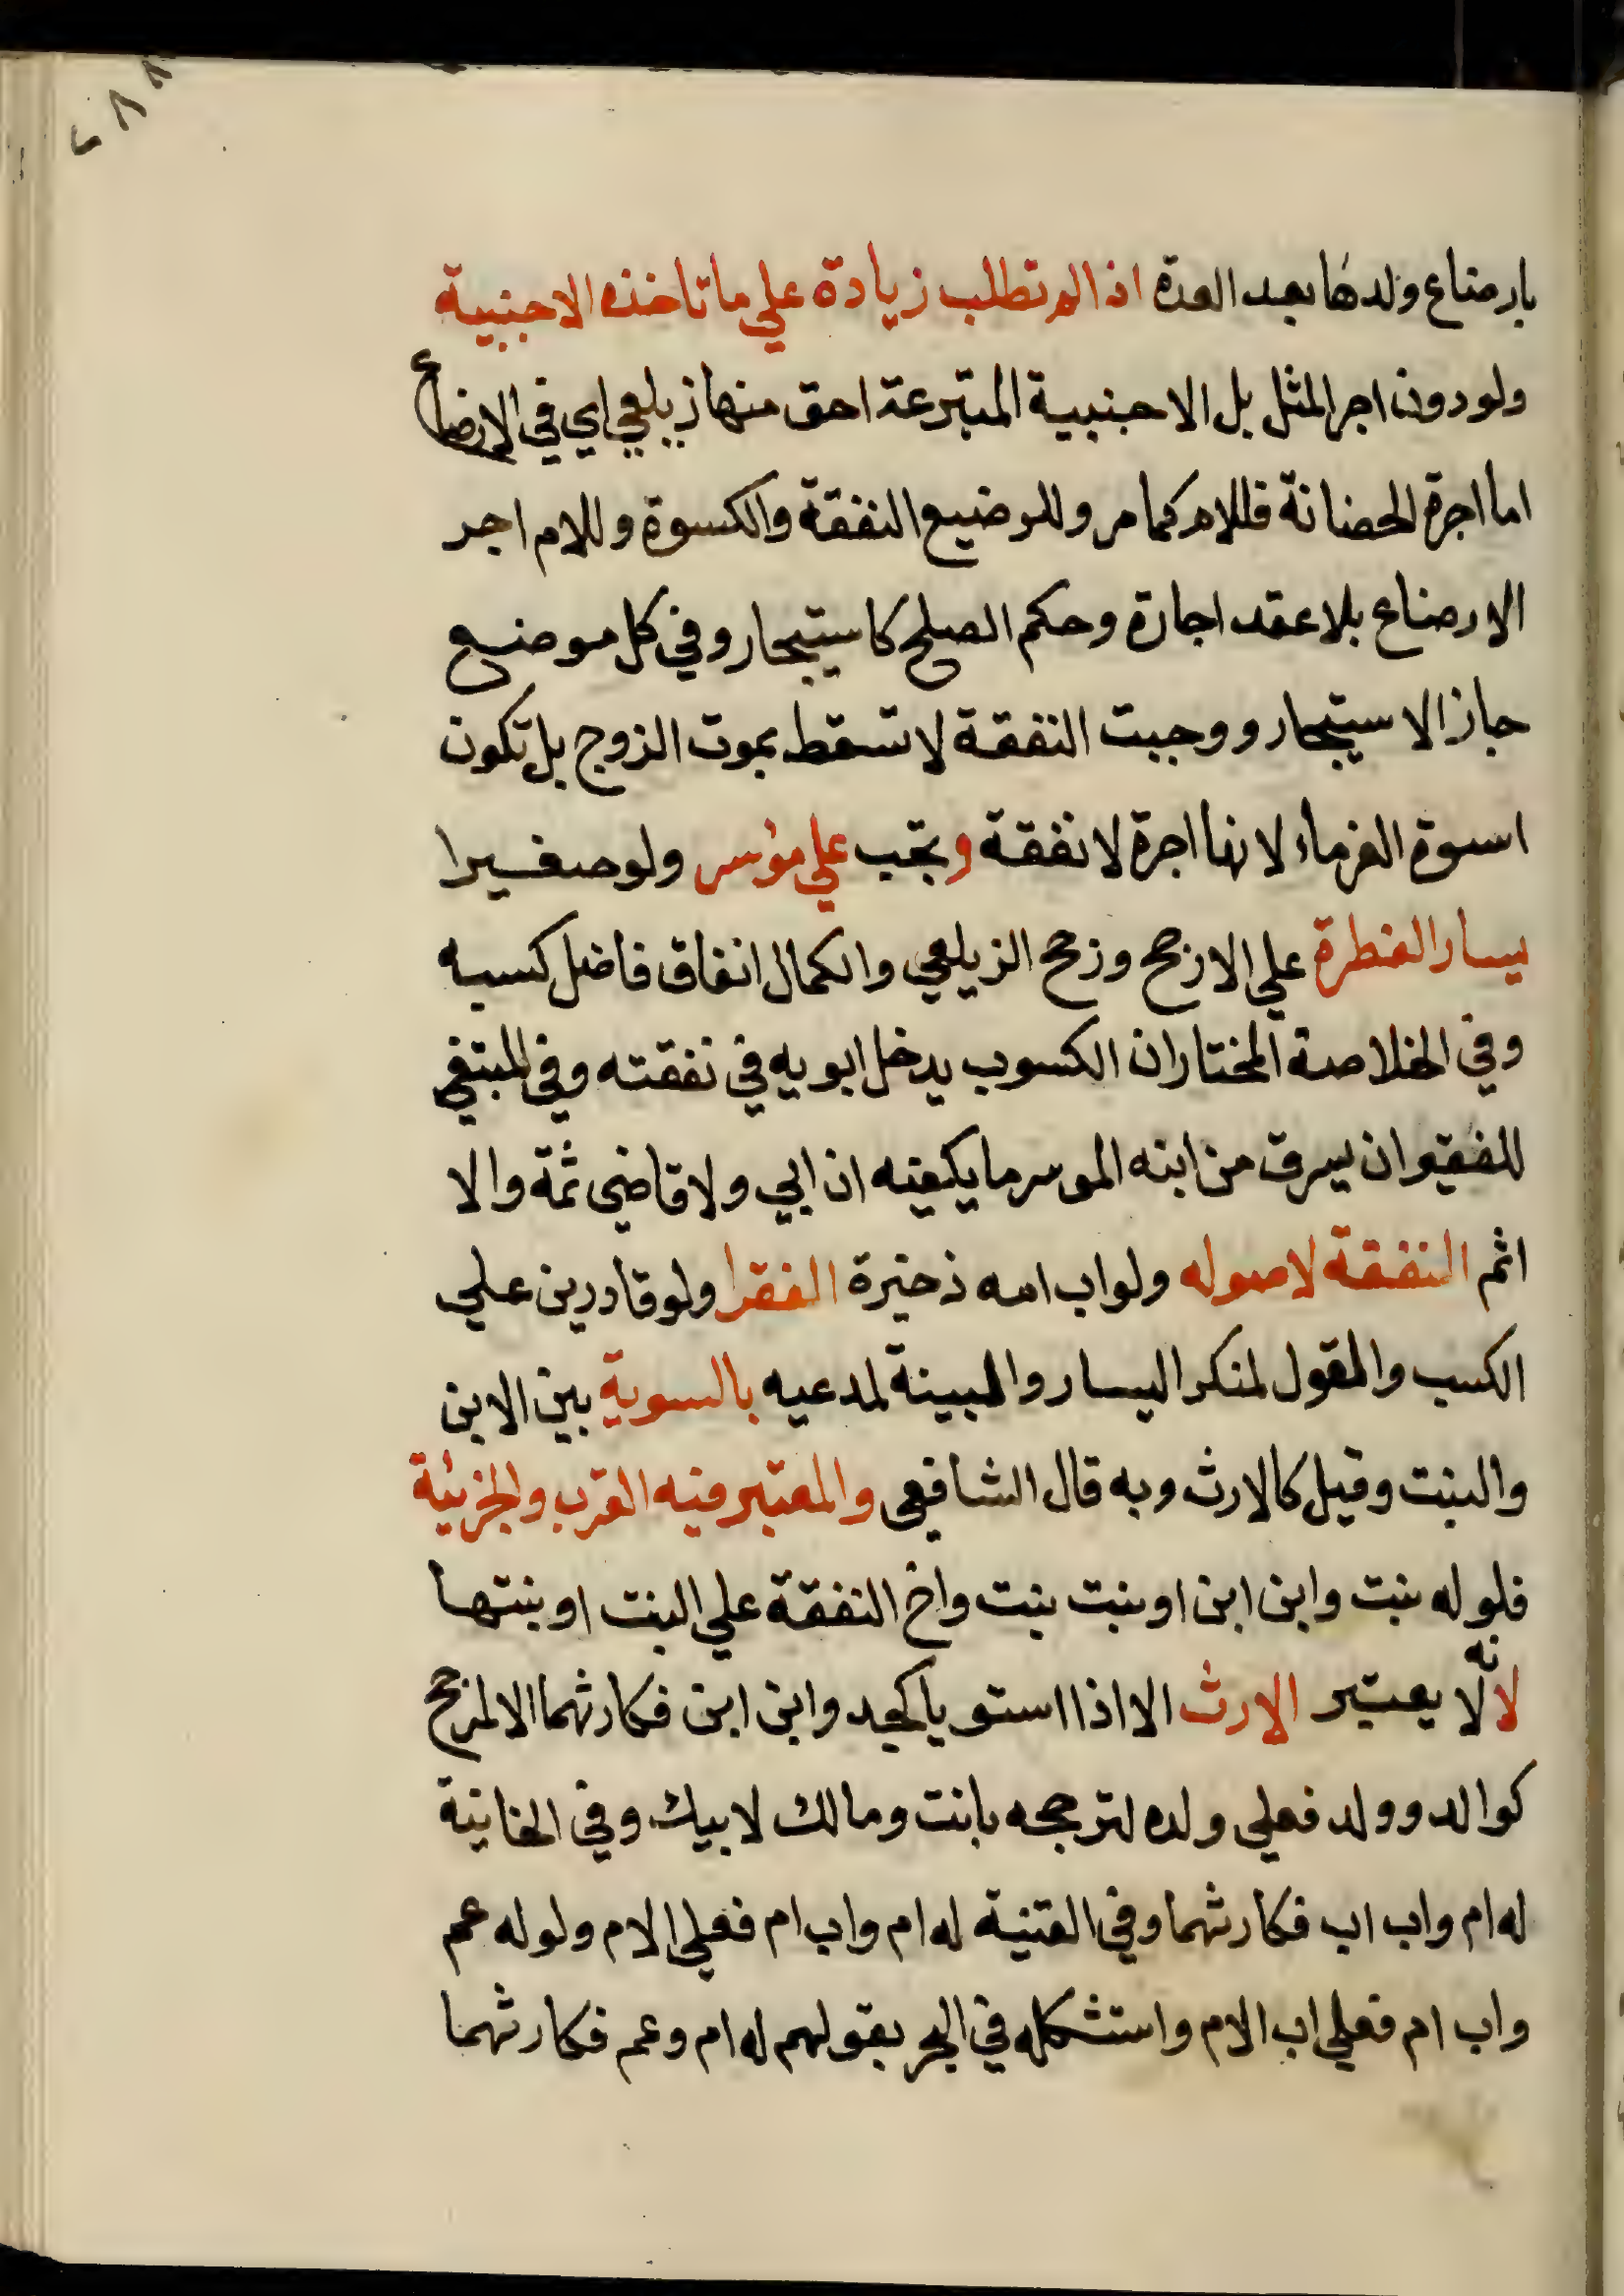 ٢٨٨
بارضاع ولدها بعد العدة اذا لم تطلب زيادة علي ما تاخذه الاجنبية
ولو دون اجر المثل بل الاجنبية المتبرعة احق منها زيلعي اي في الارضاع
اما اجرة الحضانة فللام كما مر وللرضيع النفقة والكسوة وللام اجر
الارضاع بلا عقد اجارة وحكم الصلح كاستيجار وفي كل موضع
جاز الاستيجار ووجبت النفقة لا تسقط بموت الزوج بل تكون
اسوة الغرماء لانها اجرة لا نفقة وتجب علي موسر ولو صغيرا
يسار الفطرة علي الارجح ورجح الزيلعي والكمال انفاق فاضل كسبه
وفي الخلاصة المختار ان الكسوب يدخل ابويه في نفقته وفي المبتغي
للفقير ان يسرق من ابنه الموسر ما يكفيه ان ابي ولا قاضي ثمة والا
اثم النفقة لاصوله ولو اب امه ذخيرة الفقرا ولو قادرين علي
الكسب والقول لمنكر اليسار والبينة لمدعيه بالسوية بين الابن
والبنت وقيل كالارث وبه قال الشافعي والمعتبر فيه القرب والجزئية
فلو له بنت وابن ابن او بنت بنت واخ النفقة علي البنت او بنتها
لانه لا يعتبر الارث الا اذا استويا كجد وابن ابن فكارثهما الا لمرجح
كوالد وولد فعلي ولده لترجحه بانت ومالك لابيك وفي الخانية
له ام واب اب فكارثهما وفي القنية له ام واب ام فعلي الام ولو له عم
واب ام فعلي اب الام واستشكله في البحر بقولهم له ام وعم فكارثهما